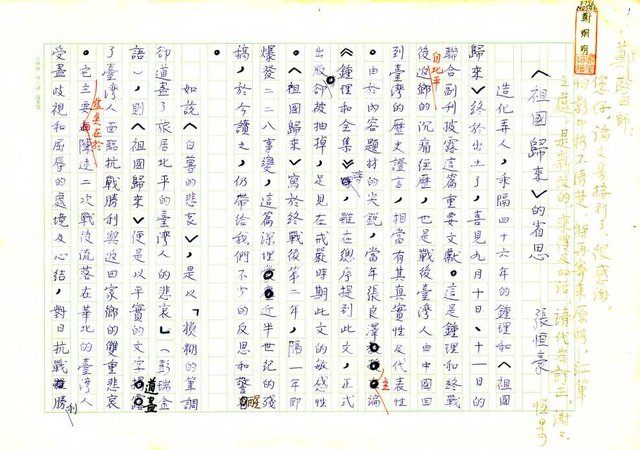 鄭炯明
鄭醫師：
您好，清文接到了，很感謝。
怕影印將不清楚，特再寄
之處，是最後的 請代為訂正，謝謝。
〈祖國歸來〉的省思
張恒豪
造化弄人，乖隔四十六年的鍾理和〈祖國
歸來〉終於出土了，喜見九月十日、十一日的
聯合副刊披露這篇重要文獻。這是鍾理和終戰
後自北平返鄉的沉痛經歷，也是戰後臺灣人由中國回
到臺灣的歷史證言，相當有其真實性及代表性
。由於內容題材的尖銳，當年張良澤主編
《鍾理和全集》時，雖在總序提到此文，正式
出版卻被抽掉，足見在戒嚴時期此文的敏感性
。〈祖國歸來〉寫於終戰後第二年，隔一年即
爆發二二八事變，這篇深埋近半世紀的殘
稿，於今讀之，仍帶給我們不少的反思和警醒
。
如說〈白薯的悲哀〉，是以「模糊的筆調
卻道盡了旅居北平的臺灣人的悲哀」（彭瑞金
語），則〈祖國歸來〉便是以平實的文字道盡
了臺灣人面臨抗戰勝利與返回家鄉的雙重悲哀
。它主要焦點在於陳述二次戰後流落在華北的臺灣人
受盡歧視和屈辱的處境及心結，對日抗戰勝利